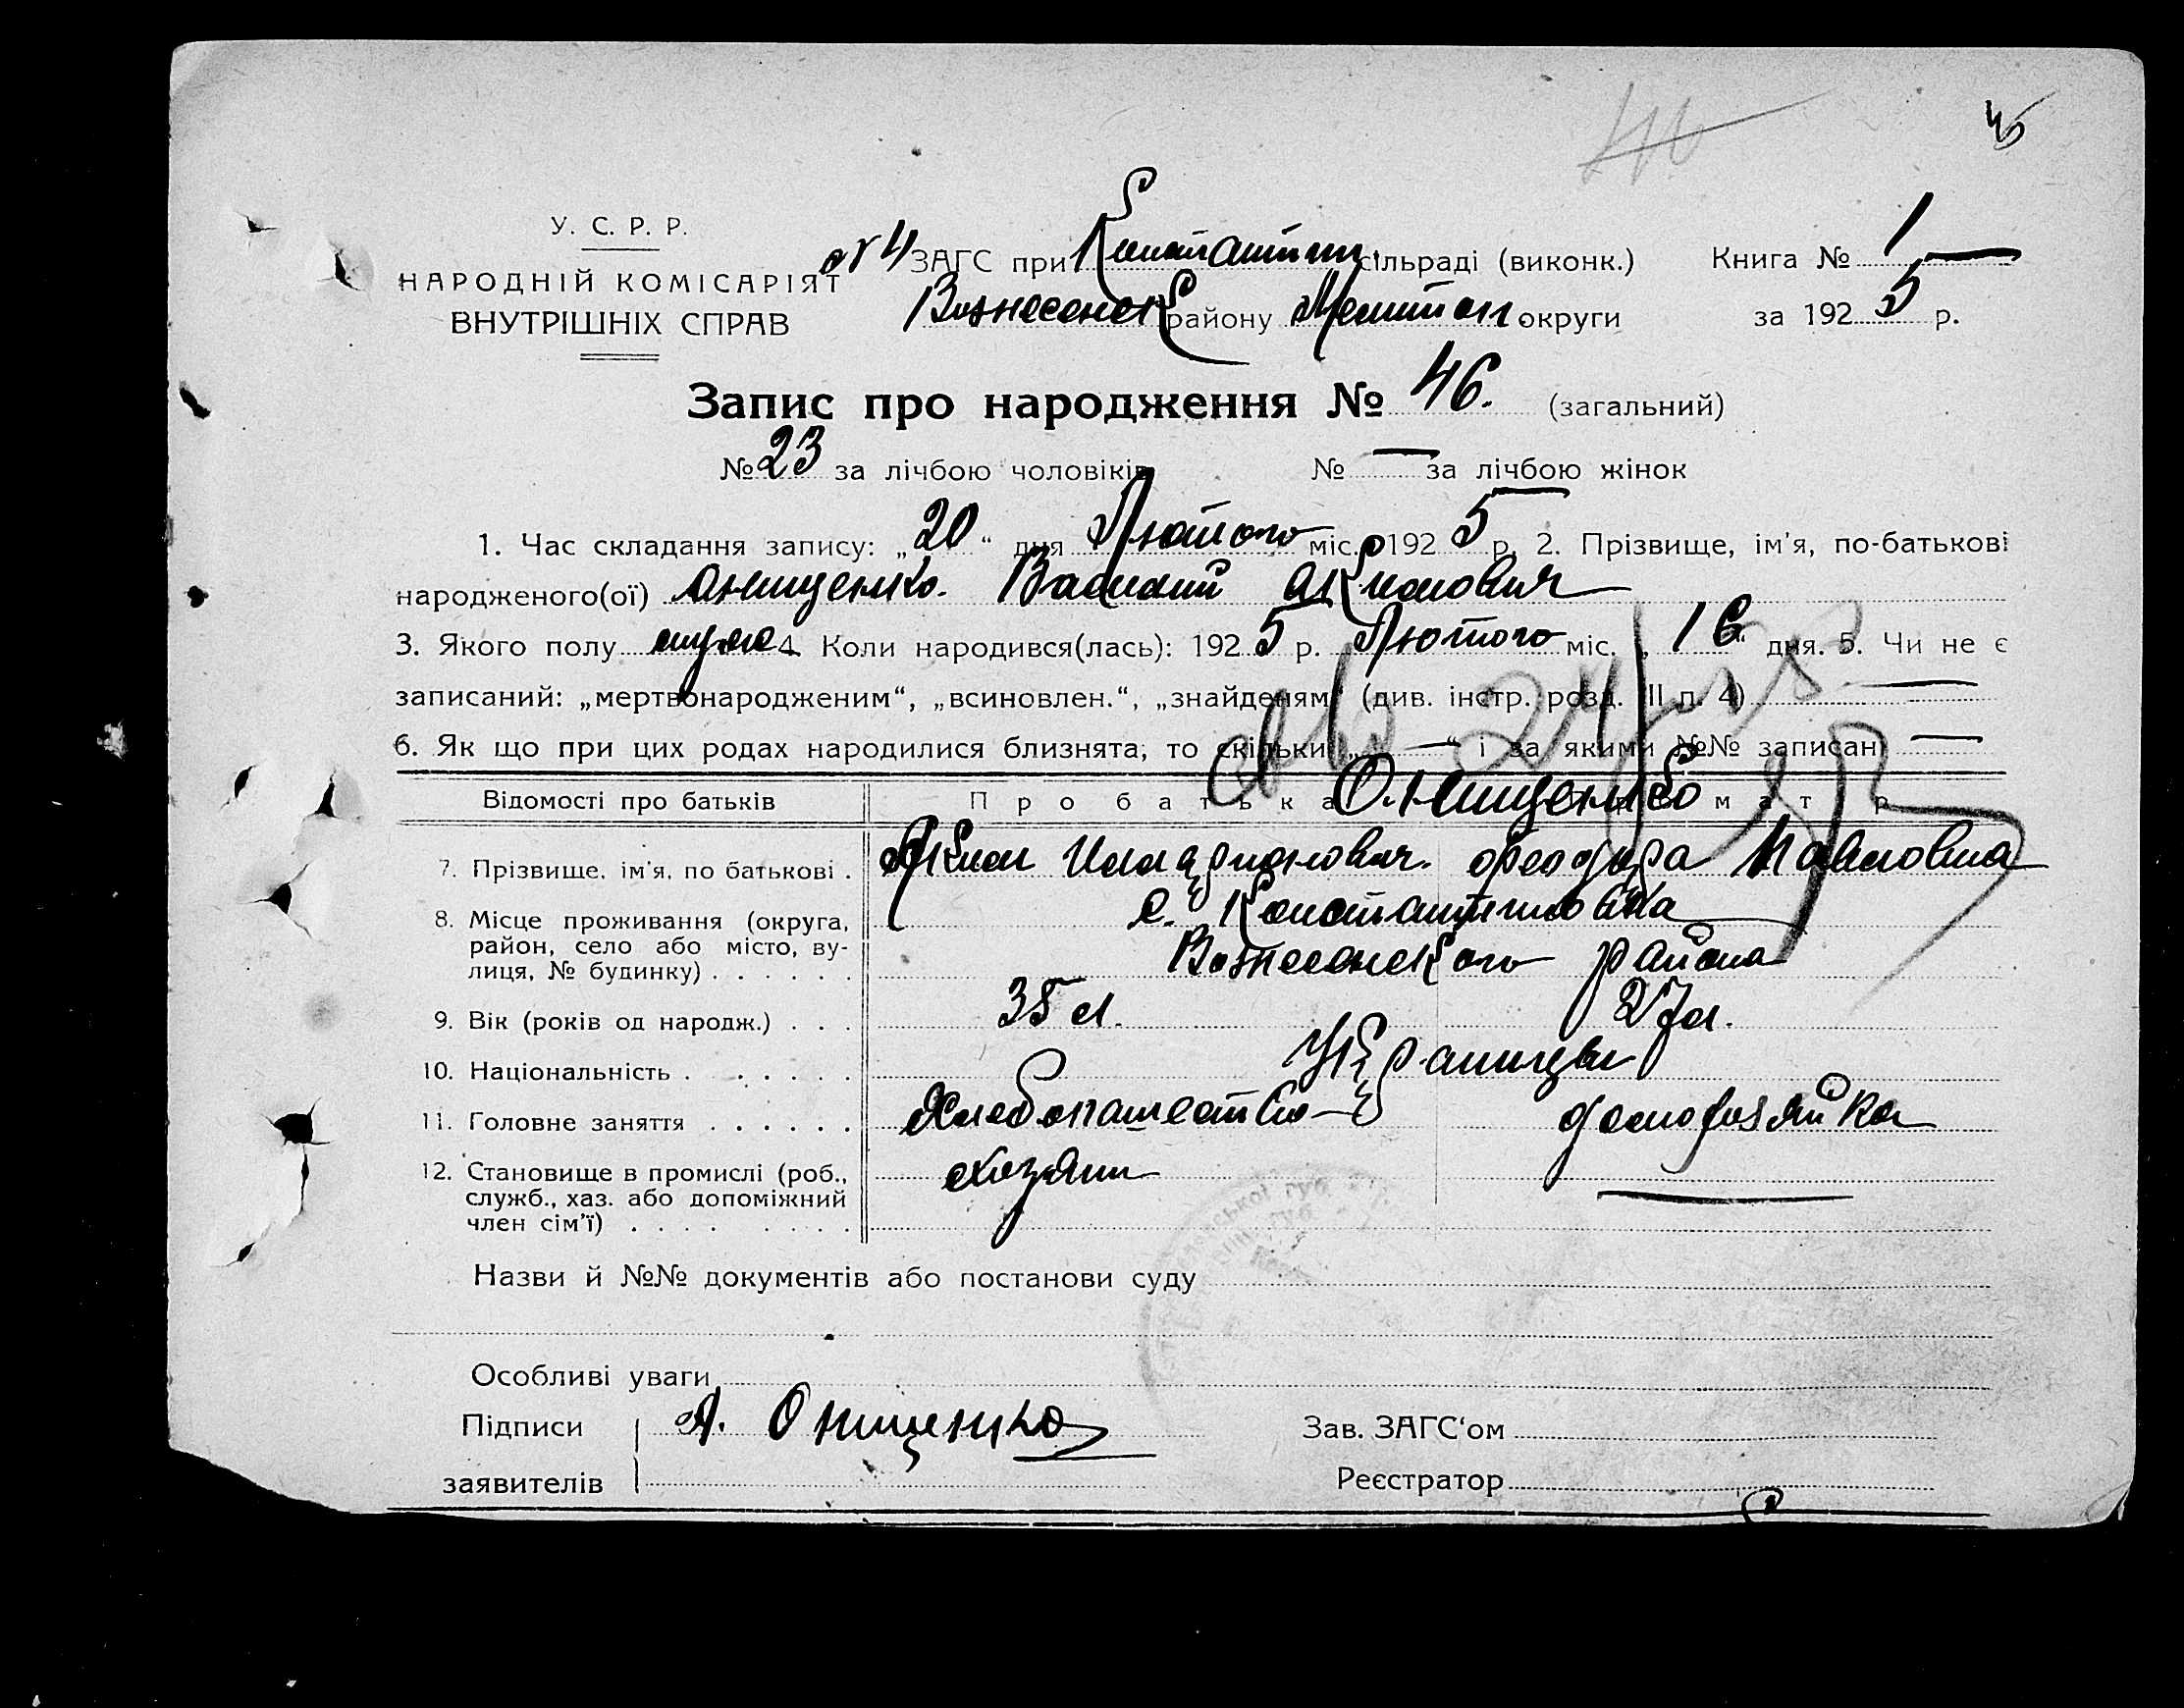 46
45
У. С. Р. Р.
НАРОДНІЙ КОМІСАРІЯТ
ВНУТРІШНІХ СПРАВ
№ 4 ЗАГС при Константин. сільраді (виконк.)
Вознесенск району Мелитоп. округи
Книга № 1
за 1925 р.
Запис про народження № 46. (загальний)
№ 23 за лічбою чоловіків № — за лічбою жінок
1. Час складання запису: „20“ дня Лютого міс. 1925 р. 2. Прізвище, ім'я, по-батькові
народженого(ої) Онищенко. Василий Акимович
3. Якого полу муж. 4. Коли народився(лась): 1925 р. Лютого міс. „16“ дня. 5. Чи не є
записаний: „мертвонародженим“, „всиновлен.“, „знайденям“ (див. інстр. розд. III п. 4) —
6. Як що при цих родах народилися близнята, то скільки „—“ і за якими №№ записані —
Відомості про батьків
Про батька
Про матір
Онищенко
7. Прізвище, ім'я, по батькові . Аким Илларионович. Феодора Павловна
8. Місце проживання (округа, район, село або місто, вулиця, № будинку) . . . . . .
с. Константиновка
Вознесенского района
9. Вік (років од народж.) . . . 35 л. 27 л.
10. Національність . . . . . . Украинцы
11. Головне заняття . . . . . . Хлебопашество домохозяйка
12. Становище в промислі (роб., служб., хаз. або допоміжний член сім'ї) . . . . . . . . хозяин —
Назви й №№ документів або постанови суду
Особливі уваги
Підписи заявителів А. Онищенко
Зав. ЗАГС'ом
Реєстратор